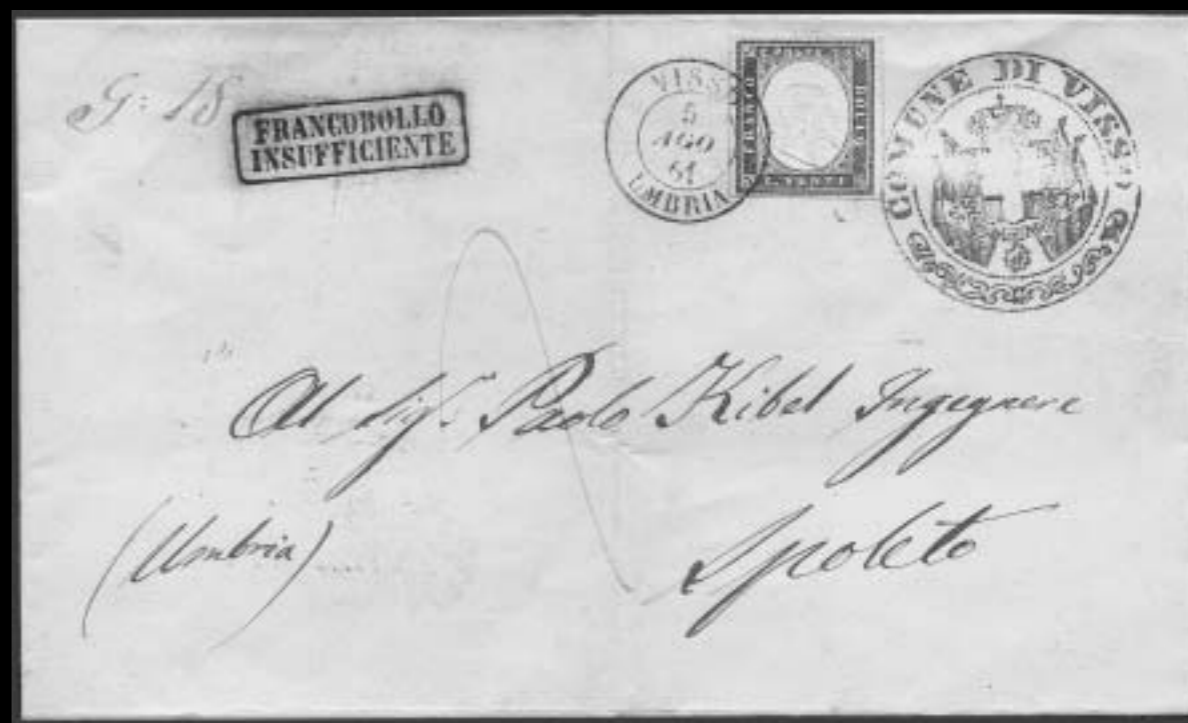 G: 18
FRANCOBOLLO
INSUFFICIENTE
VISS
5
AGO
61
UMBRIA
FRANCO
BOLLO
C. VENTI
COMUNE DI VISSO
Al Sig.r Paolo Kibel Ingegnere
(Umbria)
Spoleto